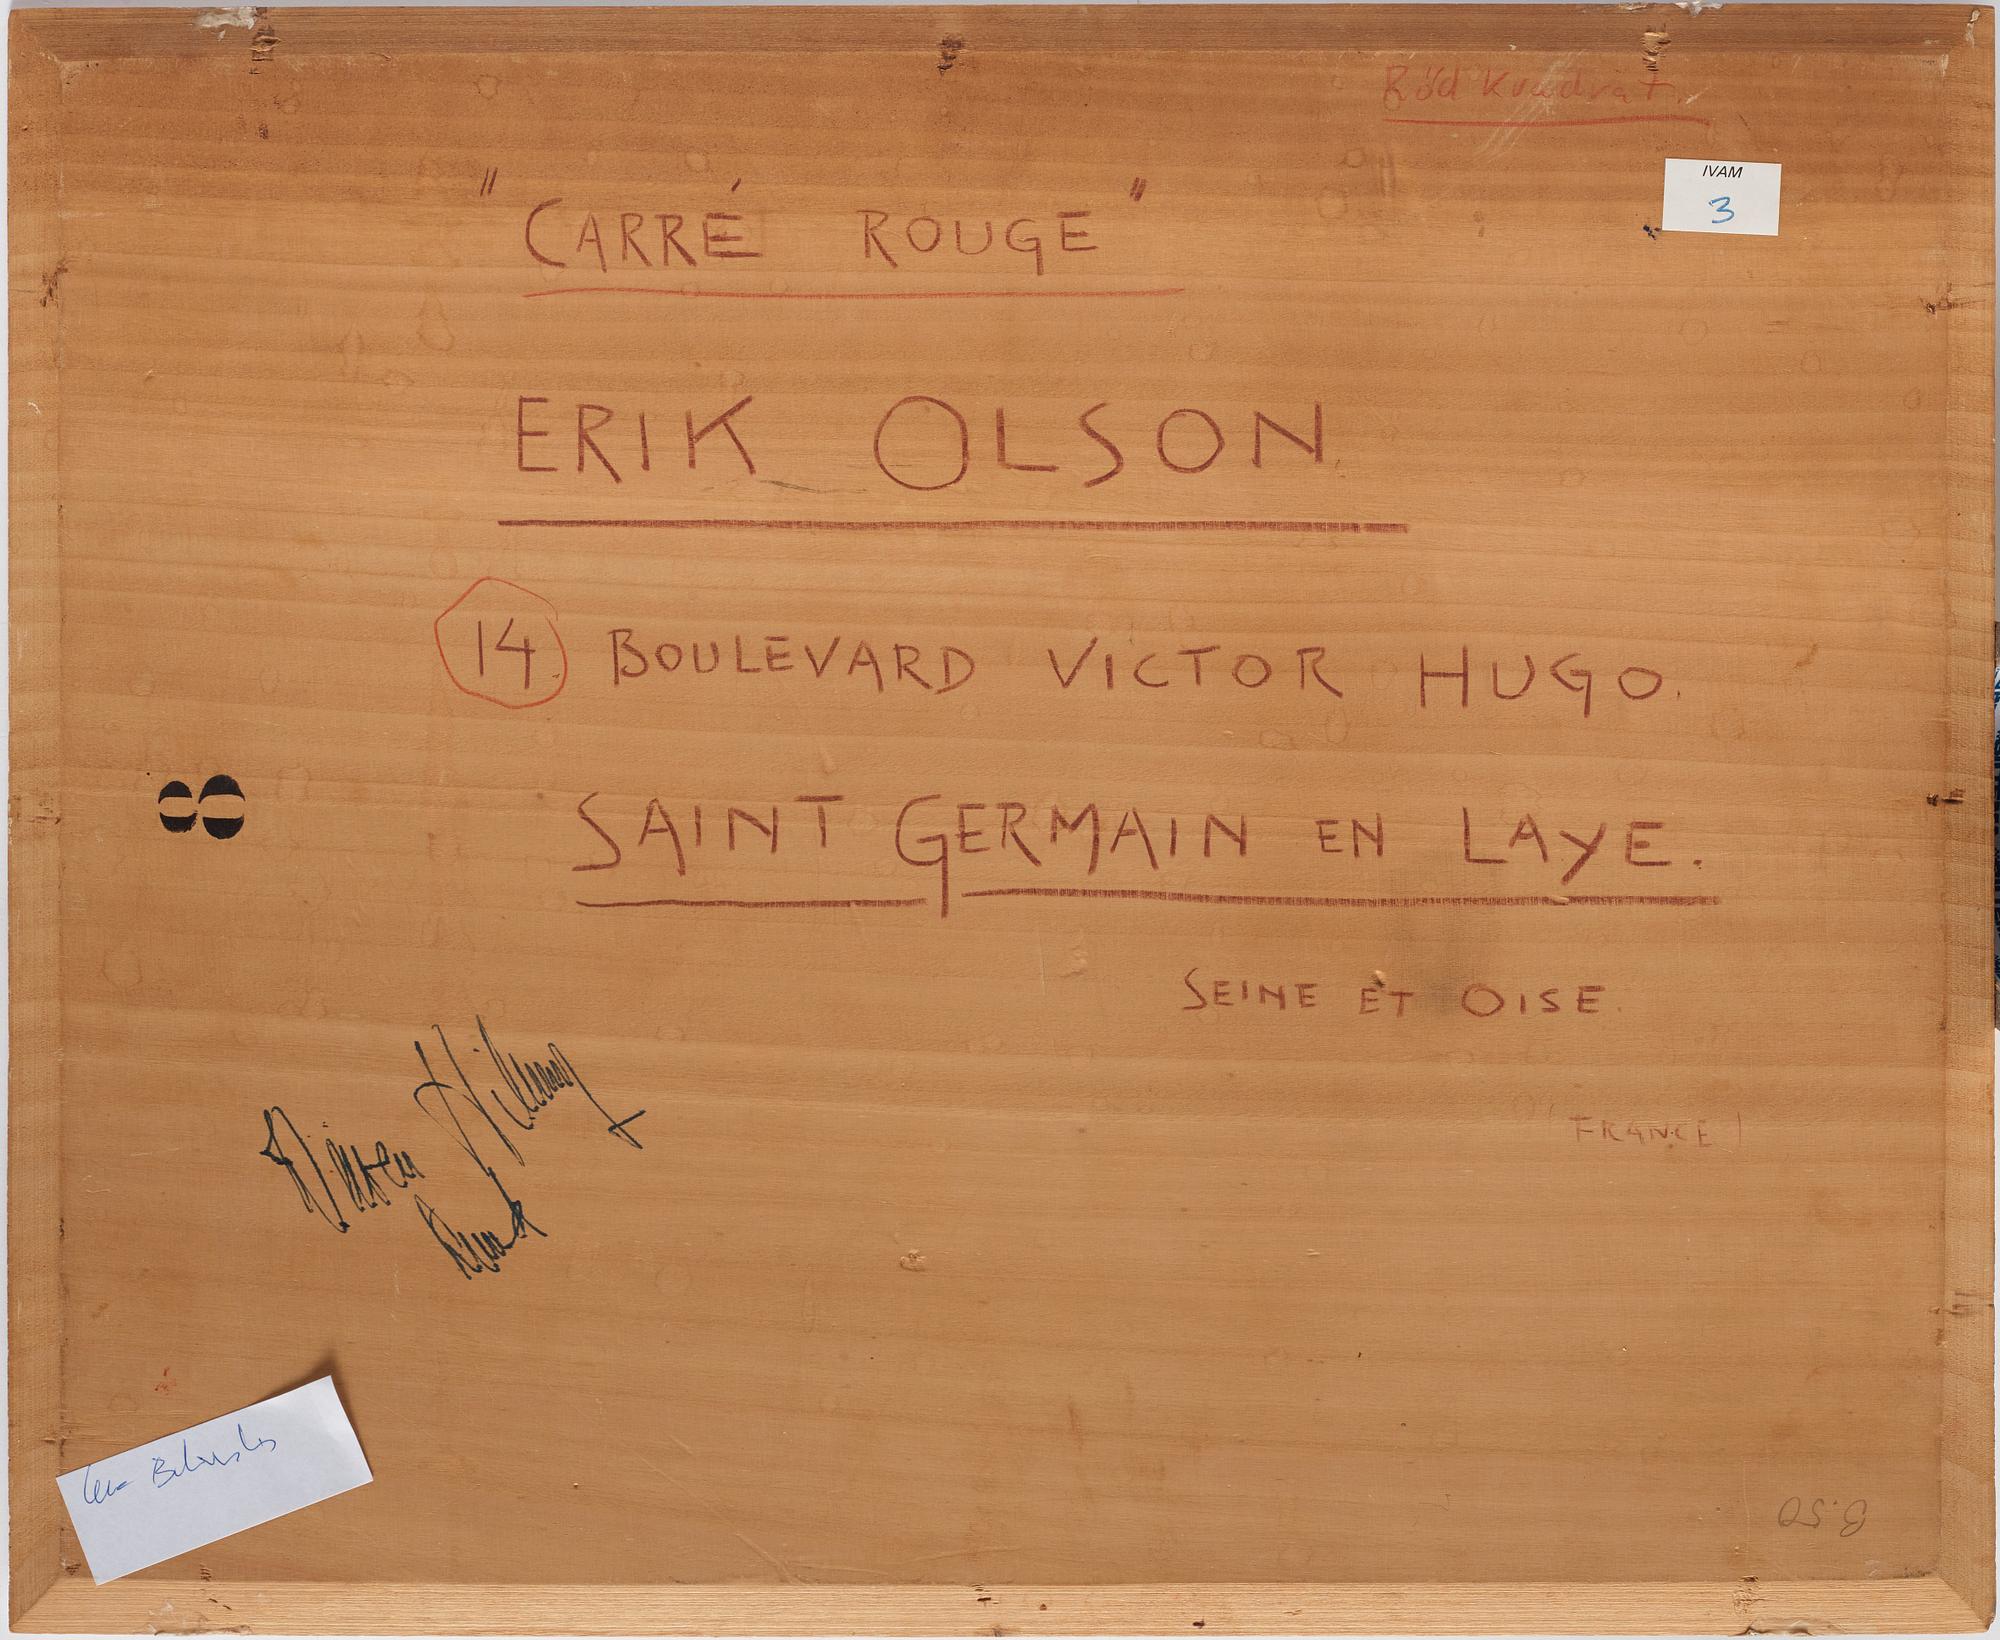 Röd Kvadrat.
IVAM
3
"CARRÉ ROUGE"
ERIK OLSON
14 BOULEVARD VICTOR HUGO.
SAINT GERMAIN EN LAYE.
SEINE ET OISE.
(FRANCE)